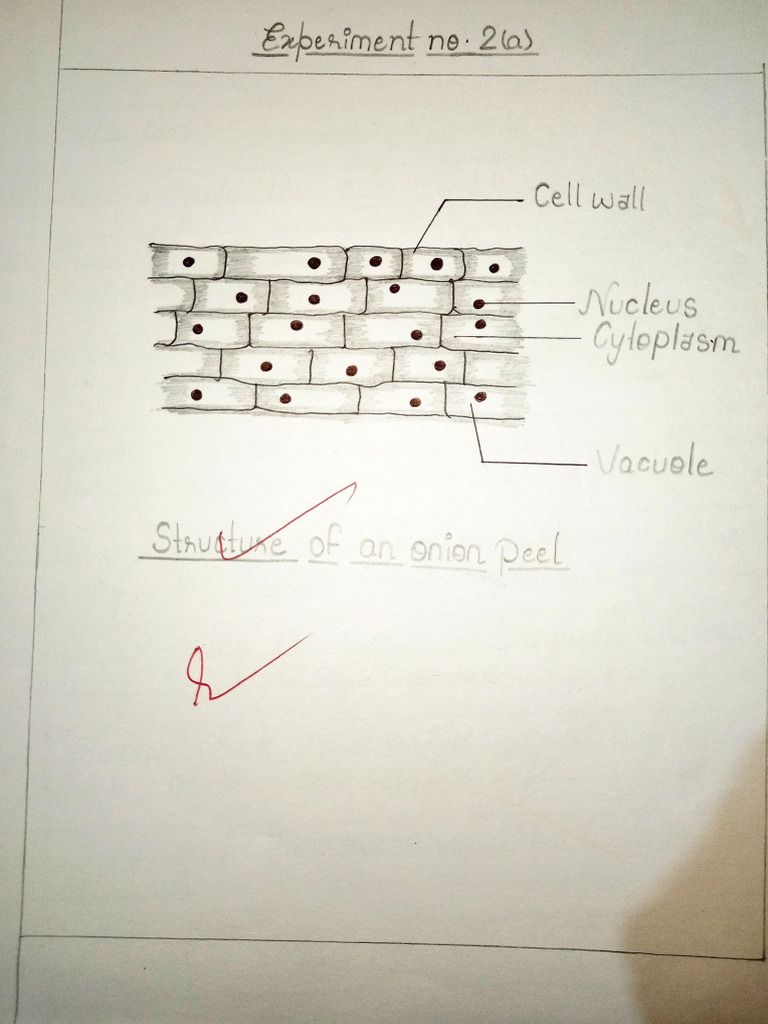 Experiment no. 2(a)
Cell wall
Nucleus
Cytoplasm
Vacuole
Structure of an onion peel